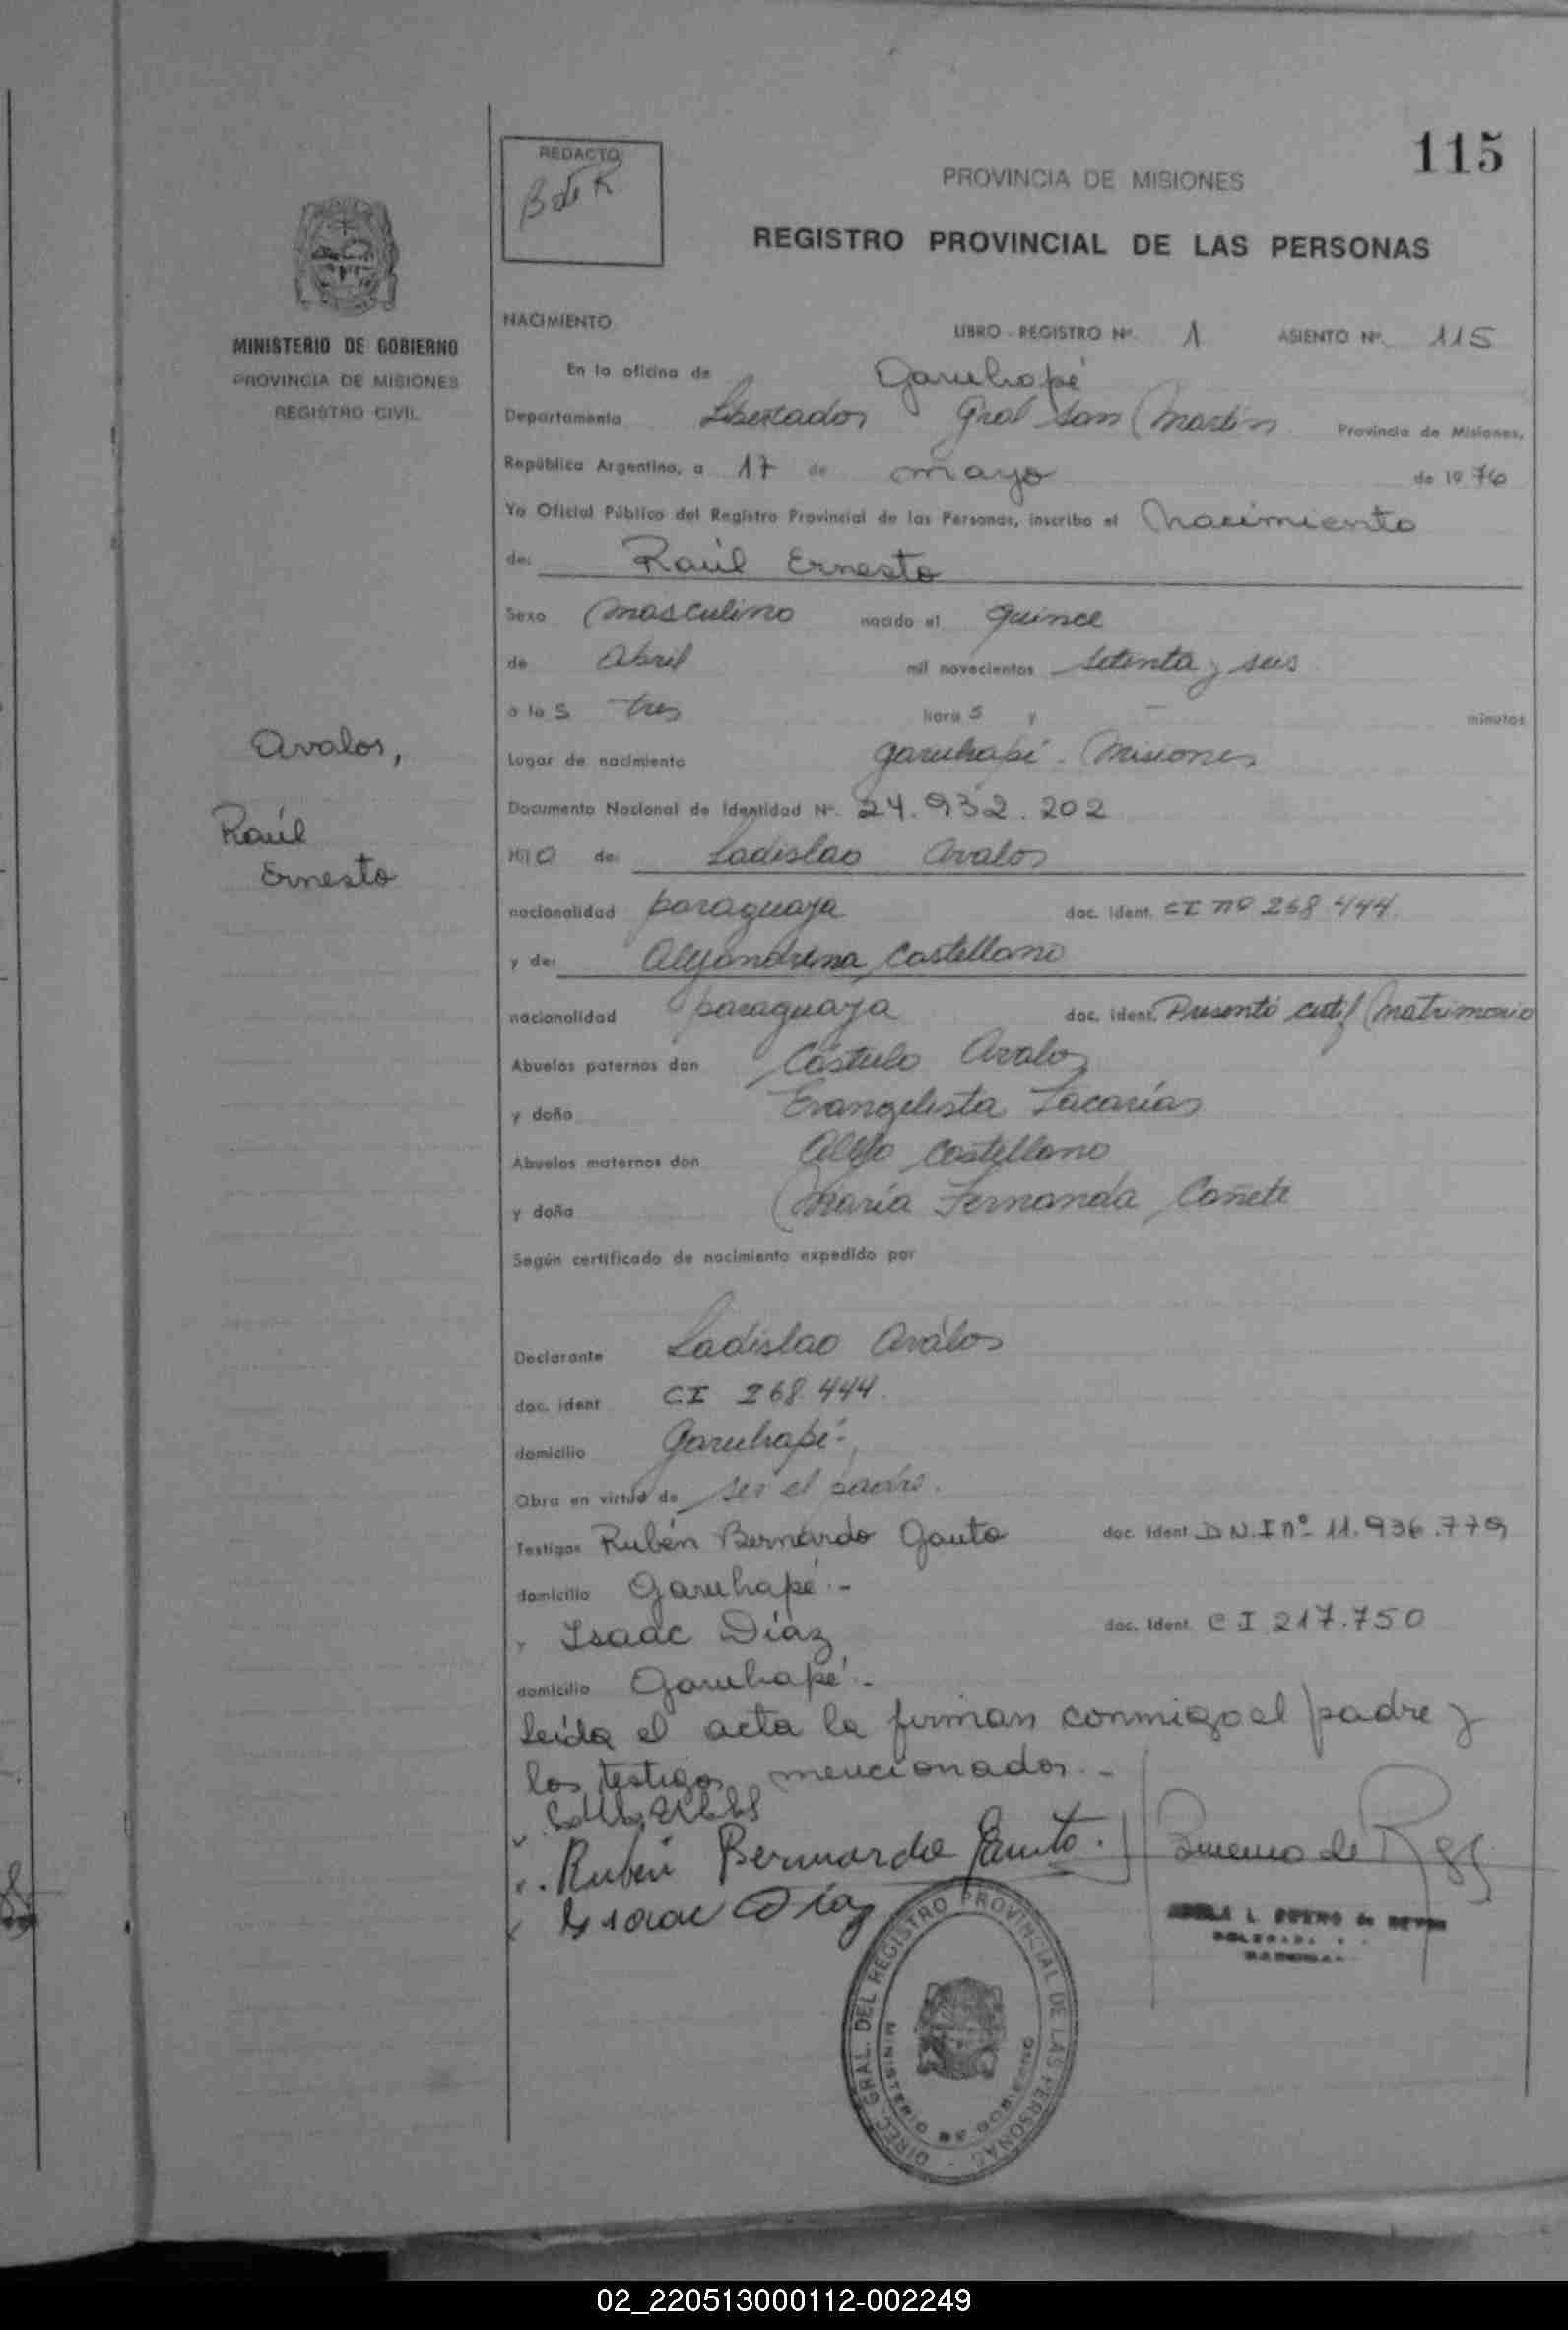 115
REDACTO:
PROVINCIA DE MISIONES
REGISTRO PROVINCIAL DE LAS PERSONAS
MINISTERIO DE GOBIERNO
PROVINCIA DE MISIONES
REGISTRO CIVIL
NACIMIENTO
LIBRO - REGISTRO Nº. 1 ASIENTO Nº. 115
En la oficina de Garuhapé
Departamento Libertador Gral San Martín Provincia de Misiones,
República Argentina, a 17 de mayo de 19 76
Yo Oficial Público del Registro Provincial de las Personas, inscribo el Nacimiento
de: Raúl Ernesto
Sexo masculino nacido el quince
de Abril mil novecientos setenta y seis
a la s tres hora s y — minutos
Avalos,
Raúl
Ernesto
Lugar de nacimiento Garuhapé - Misiones
Documento Nacional de Identidad Nº. 24.932.202
Hijo de: Ladislao Avalos
nacionalidad paraguaya doc. ident. CI nº 268.444.
y de: Alejandrina Castellano
nacionalidad paraguaya doc. ident. Presentó certif Matrimonio
Abuelos paternos don Cástulo Avalos
y doña Evangelista Zacarías
Abuelos maternos don Alejo Castellano
y doña María Fernanda Cañete
Según certificado de nacimiento expedido por
Declarante Ladislao Aválos
doc. ident CI 268.444.
domicilio Garuhapé.-
Obra en virtud de ser el padre.
Testigos Rubén Bernardo Gauto doc. ident. D.N.I nº 11.936.779
domicilio Garuhapé.-
y Isaac Díaz doc. ident. C I 217.750
domicilio Garuhapé.-
Leída el acta la firman conmigo el padre y
los testigos mencionados.-
Rubén Bernardo Gauto.
Isaac Díaz
DIREC. GRAL. DEL REGISTRO PROVINCIAL DE LAS PERSONAS
MINISTERIO DE GOBIERNO
02_220513000112-002249